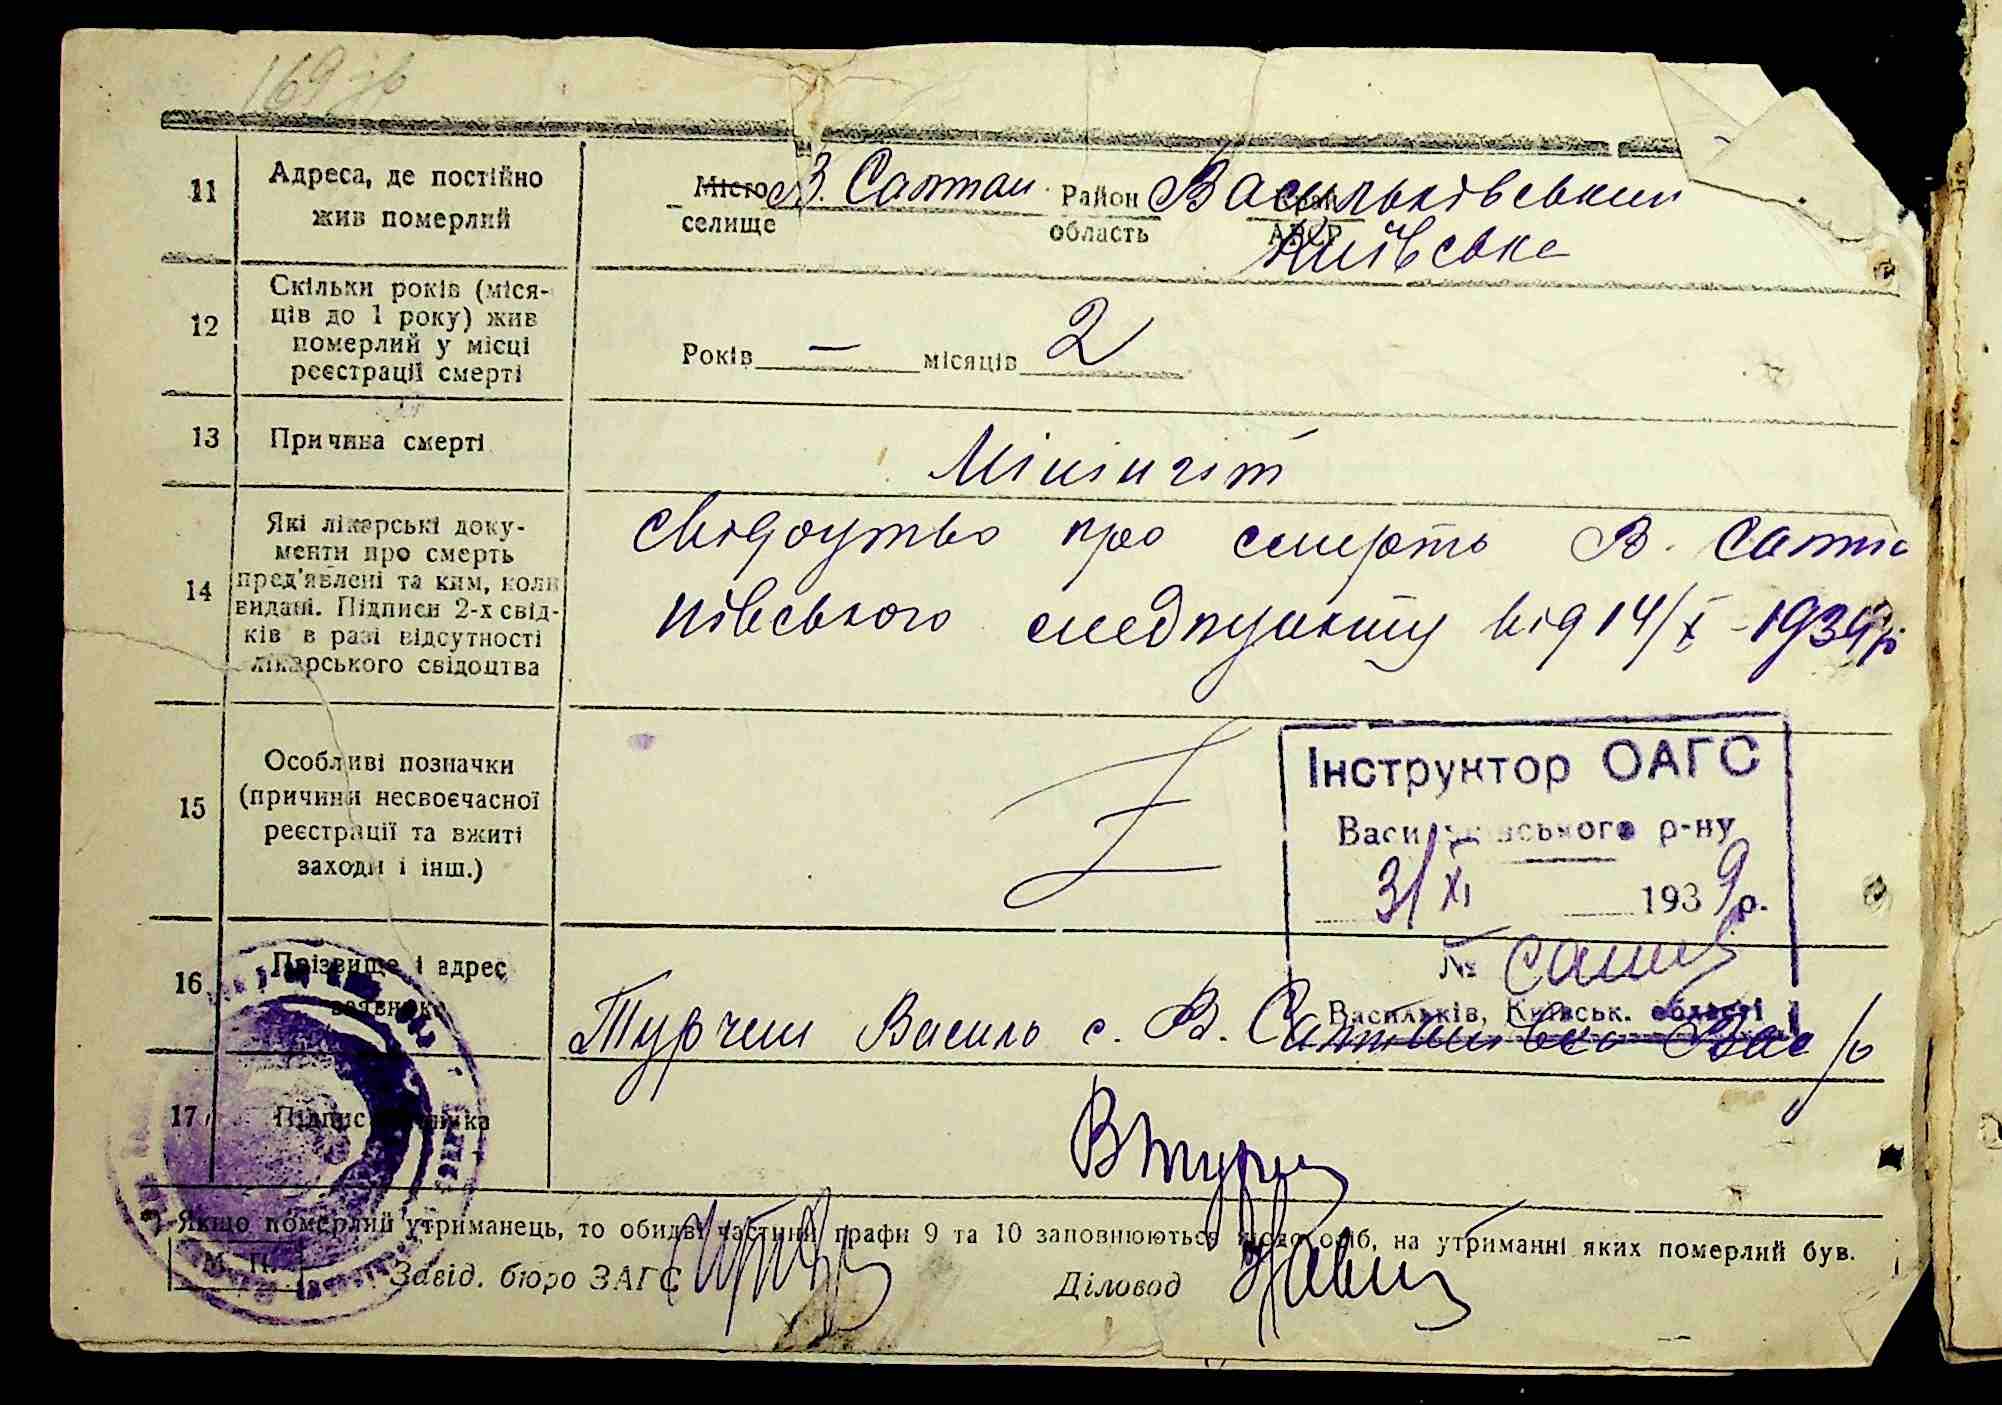 169 зв
11
Адреса, де постійно
жив померлий
Місто
селище
В. Салтан
Район
область
Васильківський
Київська
12
Скільки років (міся-
ців до 1 року) жив
померлий у місці
реєстрації смерті
Років — місяців 2
13
Причина смерті
Мінінгіт
14
Які лікарські доку-
менти про смерть
пред'явлені та ким, коли
видані. Підписи 2-х свід-
ків в разі відсутності
лікарського свідоцтва
свідоцтво про смерть В. Салта
нівського медпункту від 14/X - 1939р
15
Особливі позначки
(причини несвоєчасної
реєстрації та вжиті
заходи і інш.)
Інструктор ОАГС
Васильківського р-ну
31/XI 1939р.
№
Васильків, Київськ. області
16
Прізвище і адрес
заявника
Турчин Василь с. В. Салтанівка Вас /р
17
Підпис заявника
ВТурчин
*) Якщо померлий утриманець, то обидві частини графи 9 та 10 заповнюються щодо осіб, на утриманні яких померлий був.
М. П.
Завід. бюро ЗАГС
Діловод